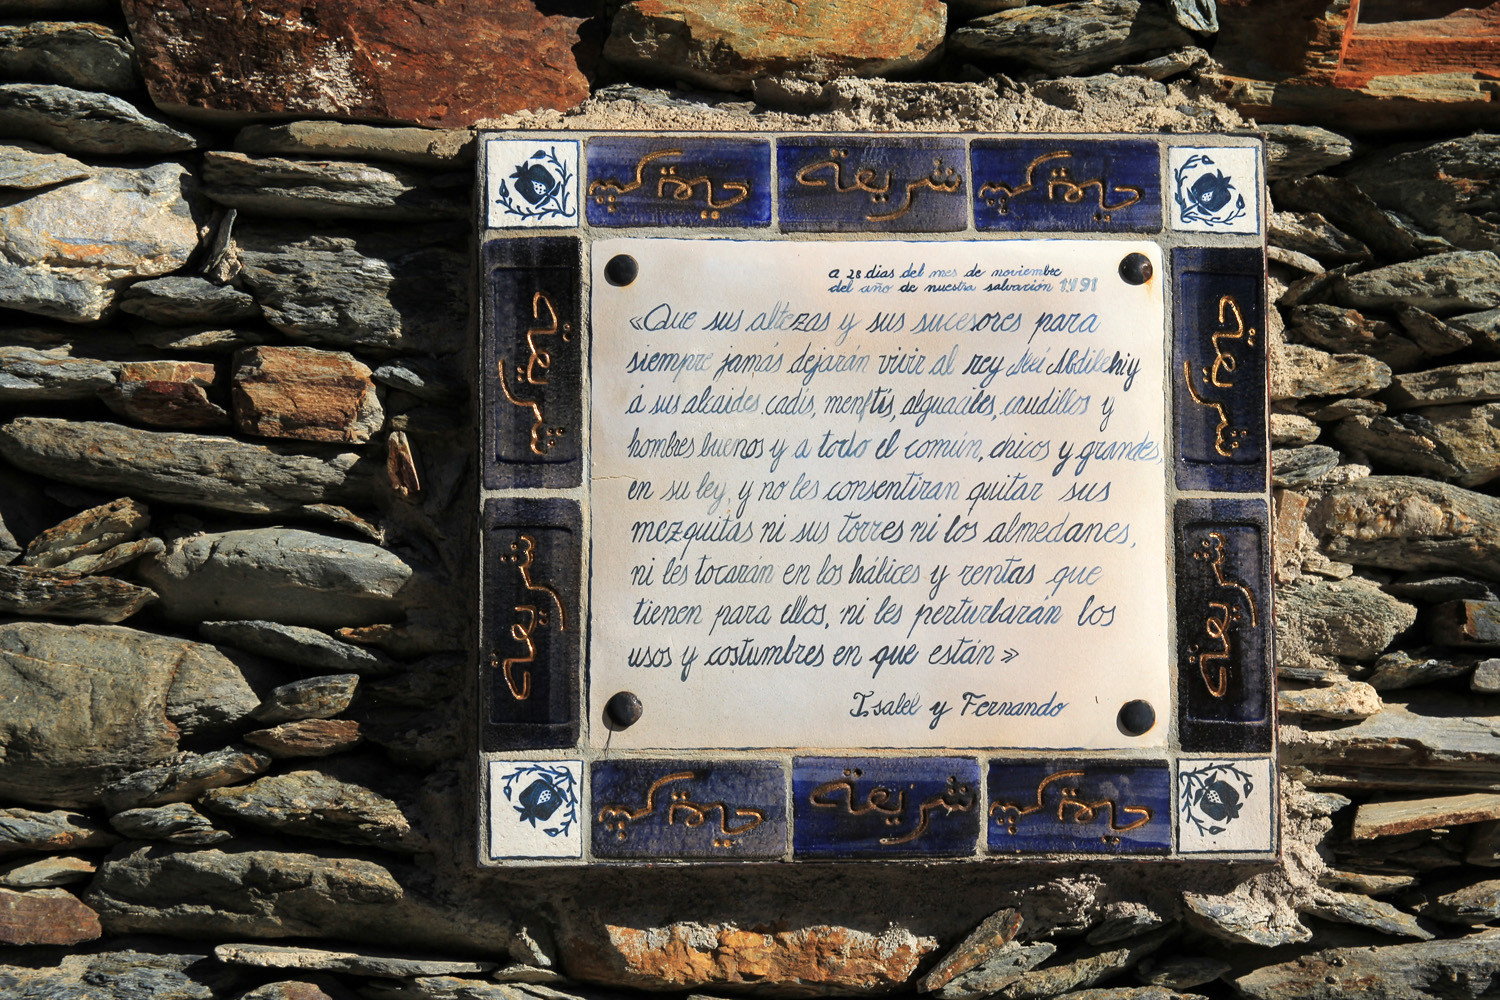 حياة كريمة شريعة حياة كريمة
a 28 dias del mes de noviembre
del año de nuestra salvación 1491
«Que sus altezas y sus sucesores para
siempre jamás dejarán vivir al rey Abdilehiy
á sus alcaides, cadis, menftis, alguaciles, caudillos y
hombres buenos y a todo el común, chicos y grandes,
en su ley, y no les consentiran quitar sus
mezquitas ni sus torres ni los almedanes,
ni les tocarán en los hábices y rentas que
tienen para ellos, ni les perturbarán los
usos y costumbres en que están»
Isabel y Fernando
شريعة
شريعة
شريعة
شريعة
شريعة